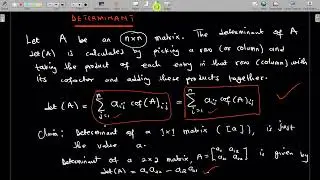 DETERMINANT
Let A be an n×n matrix. The determinant of A
det(A) is calculated by picking a row (or column) and
taking the product of each entry in that row (column) with
its cofactor and adding these products together.
det(A) = ∑_{j=1}^{n} a_{ij} cof(A)_{ij} = ∑_{i=1}^{n} a_{ij} cof(A)_{ij}
Determinant of a 1×1 matrix ([a]), is just
the value a.
Determinant of a 2×2 matrix, A = is given by
det(A) =